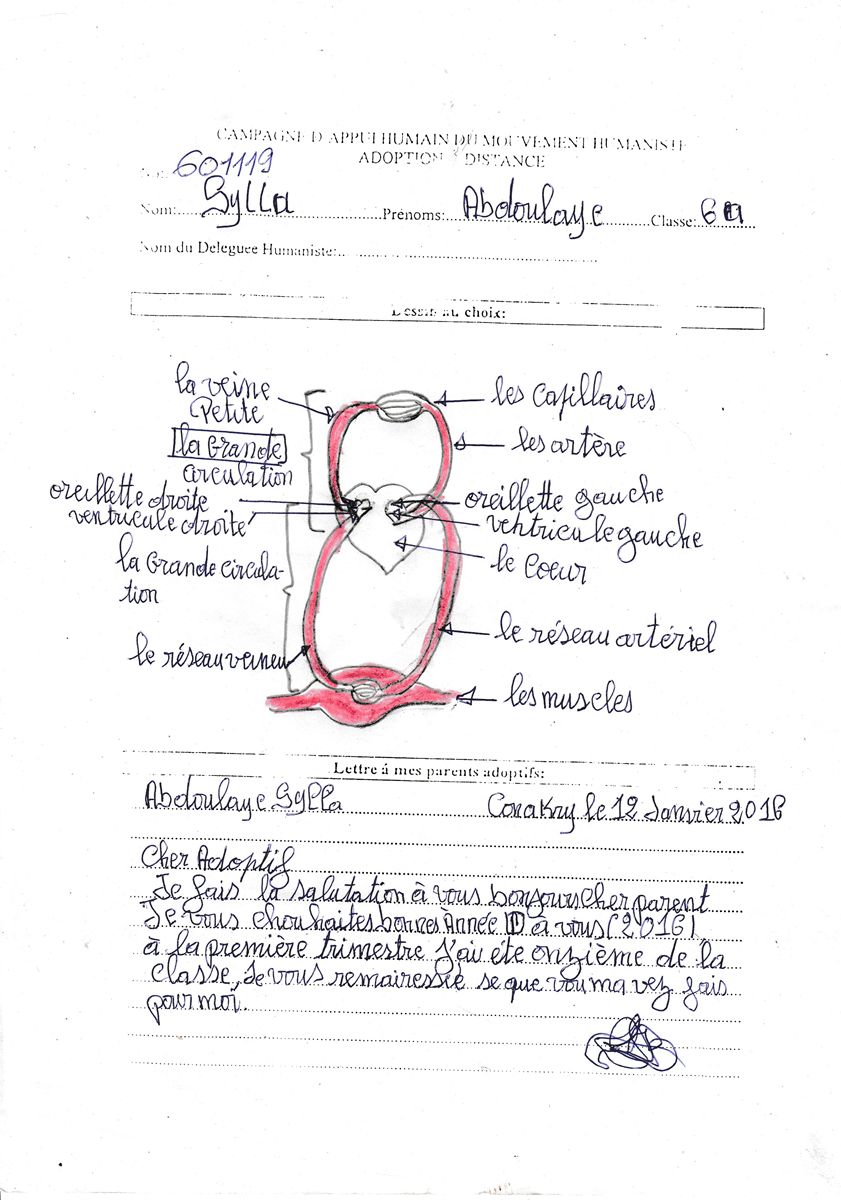 CAMPAGNE D'APPUI HUMAIN DU MOUVEMENT HUMANISTE
ADOPTION Á DISTANCE
No: 601119
Nom: Sylla Prénoms: Abdoulaye Classe: 6
Nom du Deleguee Humaniste:
Dessin au choix:
la veine
Petite
la Grande
circulation
oreillette droite
ventricule droite
la Grande circula-
tion
le réseau veineu
les Capillaires
les artère
oreillette gauche
ventricule gauche
le Coeur
le réseau artériel
les muscles
Lettre á mes parents adoptifs:
Abdoulaye Sylla Conakry le 12 Janvier 2016
Cher Adoptif
Je fais la salutation à vous bonjours cher parent
Je vous chouhaites bonnes Année à vous (2016)
à la première trimestre j'ai éte onzième de la
classe, Je vous remairessie se que vou ma vez fais
pour moi.